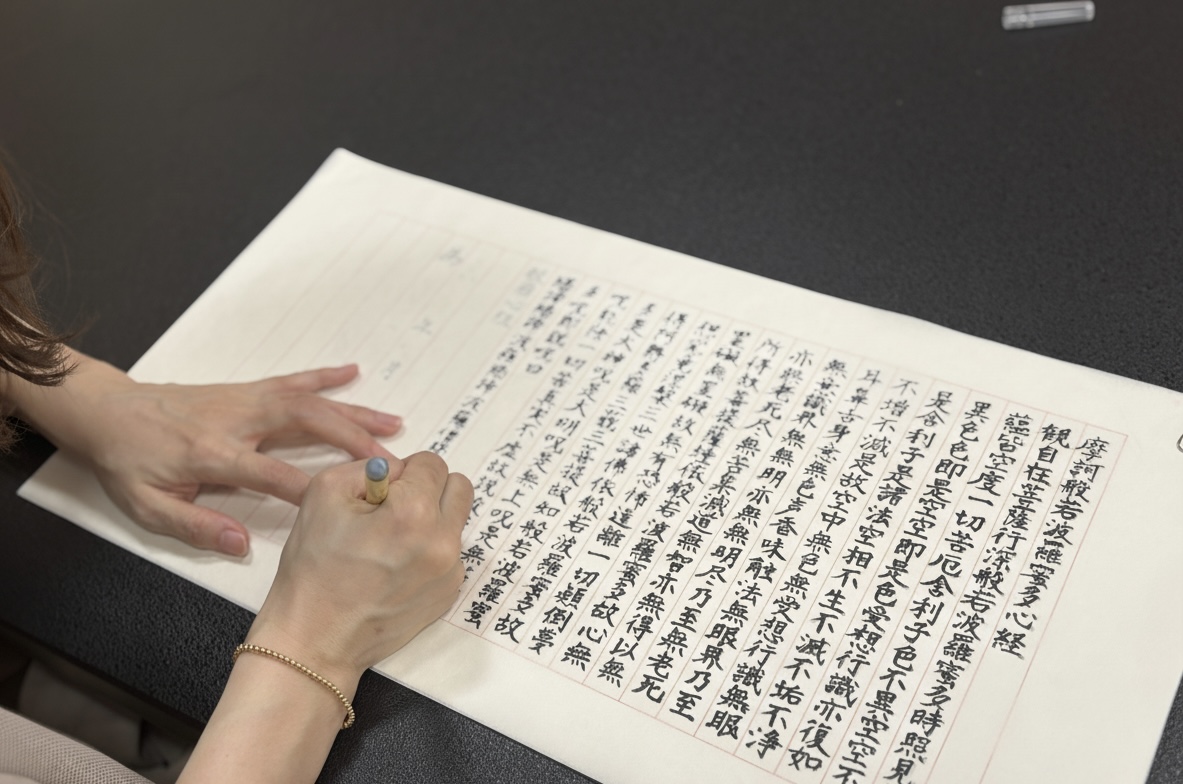 摩訶般若波羅蜜多心経
観自在菩薩行深般若波羅蜜多時照見
蘊皆空度一切苦厄舎利子色不異空空不
異色色即是空空即是色受想行識亦復如
是舎利子是諸法空相不生不滅不垢不浄
不増不減是故空中無色無受想行識無眼
耳鼻舌身意無色声香味触法無眼界乃至
無意識界無無明亦無無明尽乃至無老死
亦無老死尽無苦集滅道無智亦無得以無
所得故菩提薩埵依般若波羅蜜多故心無
罣礙無罣礙故無有恐怖遠離一切顛倒夢
想究竟涅槃三世諸仏依般若波羅蜜多故
得阿耨多羅三藐三菩提故知般若波羅蜜
多是大神呪是大明呪是無上呪是無
呪能除一切苦真実不虚故説般
多呪即説呪曰
羯諦羯諦波羅羯諦波羅僧羯
般若心経